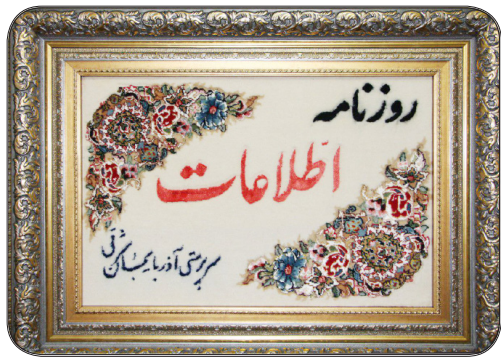 روزنامه
اطلاعات
سرپرستی آذربایجان شرقی